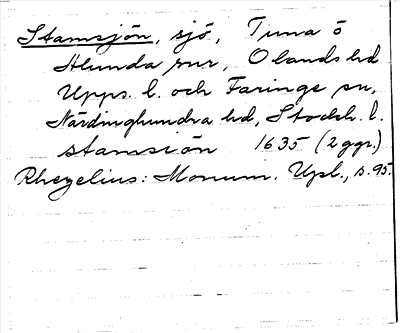 Stamsjön, sjö, Tuna o
Alunda snr, Olands hd
Upps. l. och Faringe sn,
Närdinghundra hd, Stockh. l.
stamsiön 1635 (2 ggr.)
Rhezelius: Monum. Upl., s. 95.